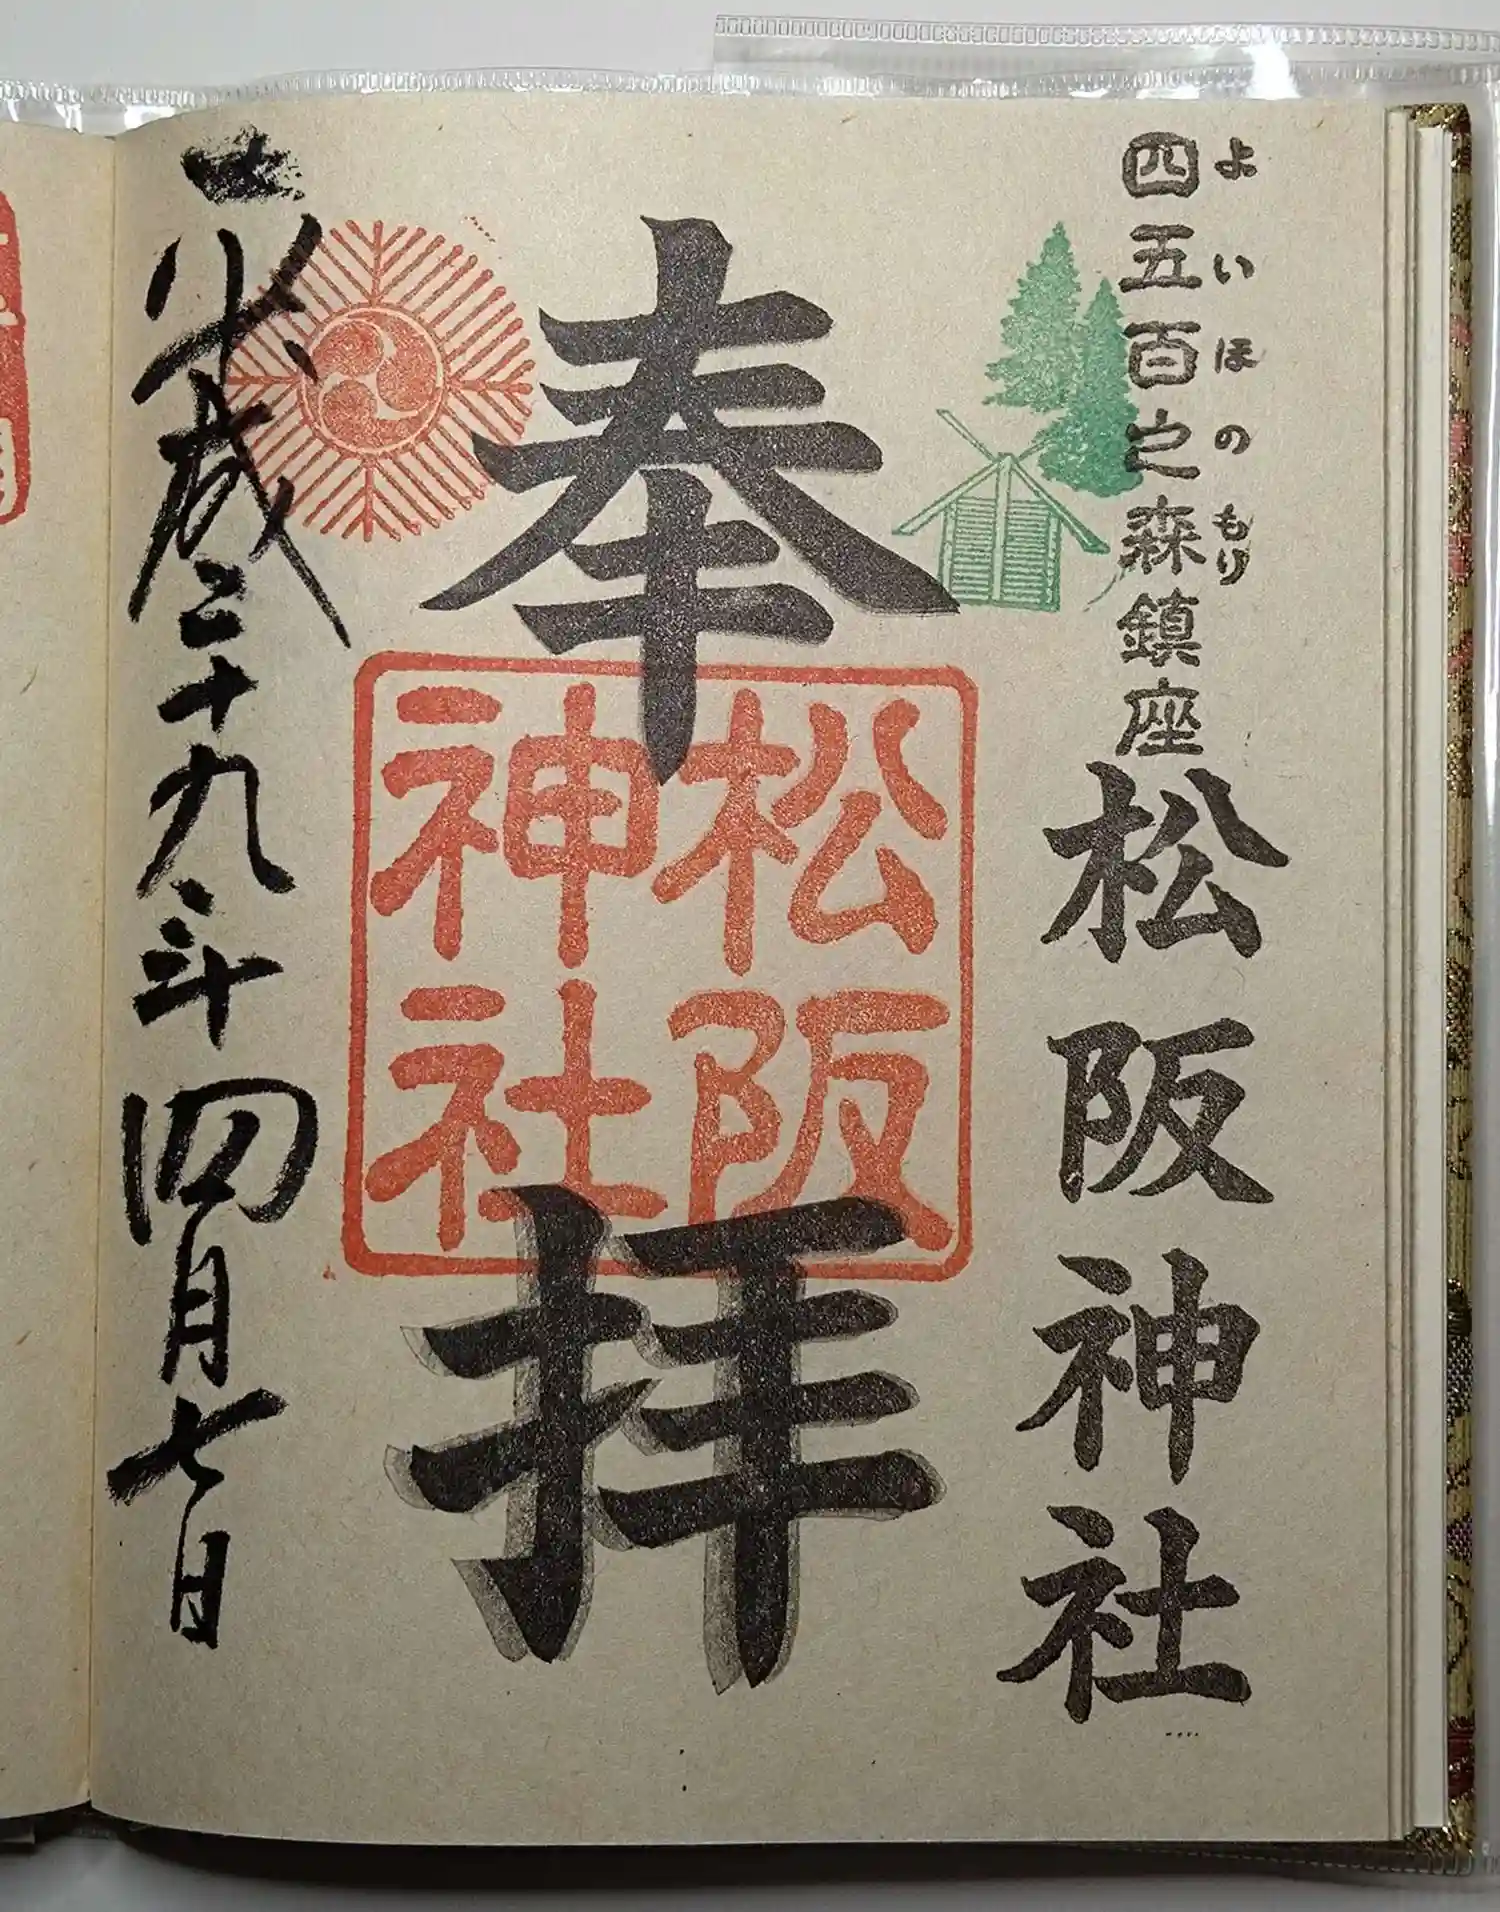 よいほのもり
四五百之森鎮座
松阪神社
奉拝
松阪
神社
平成二十九年四月七日